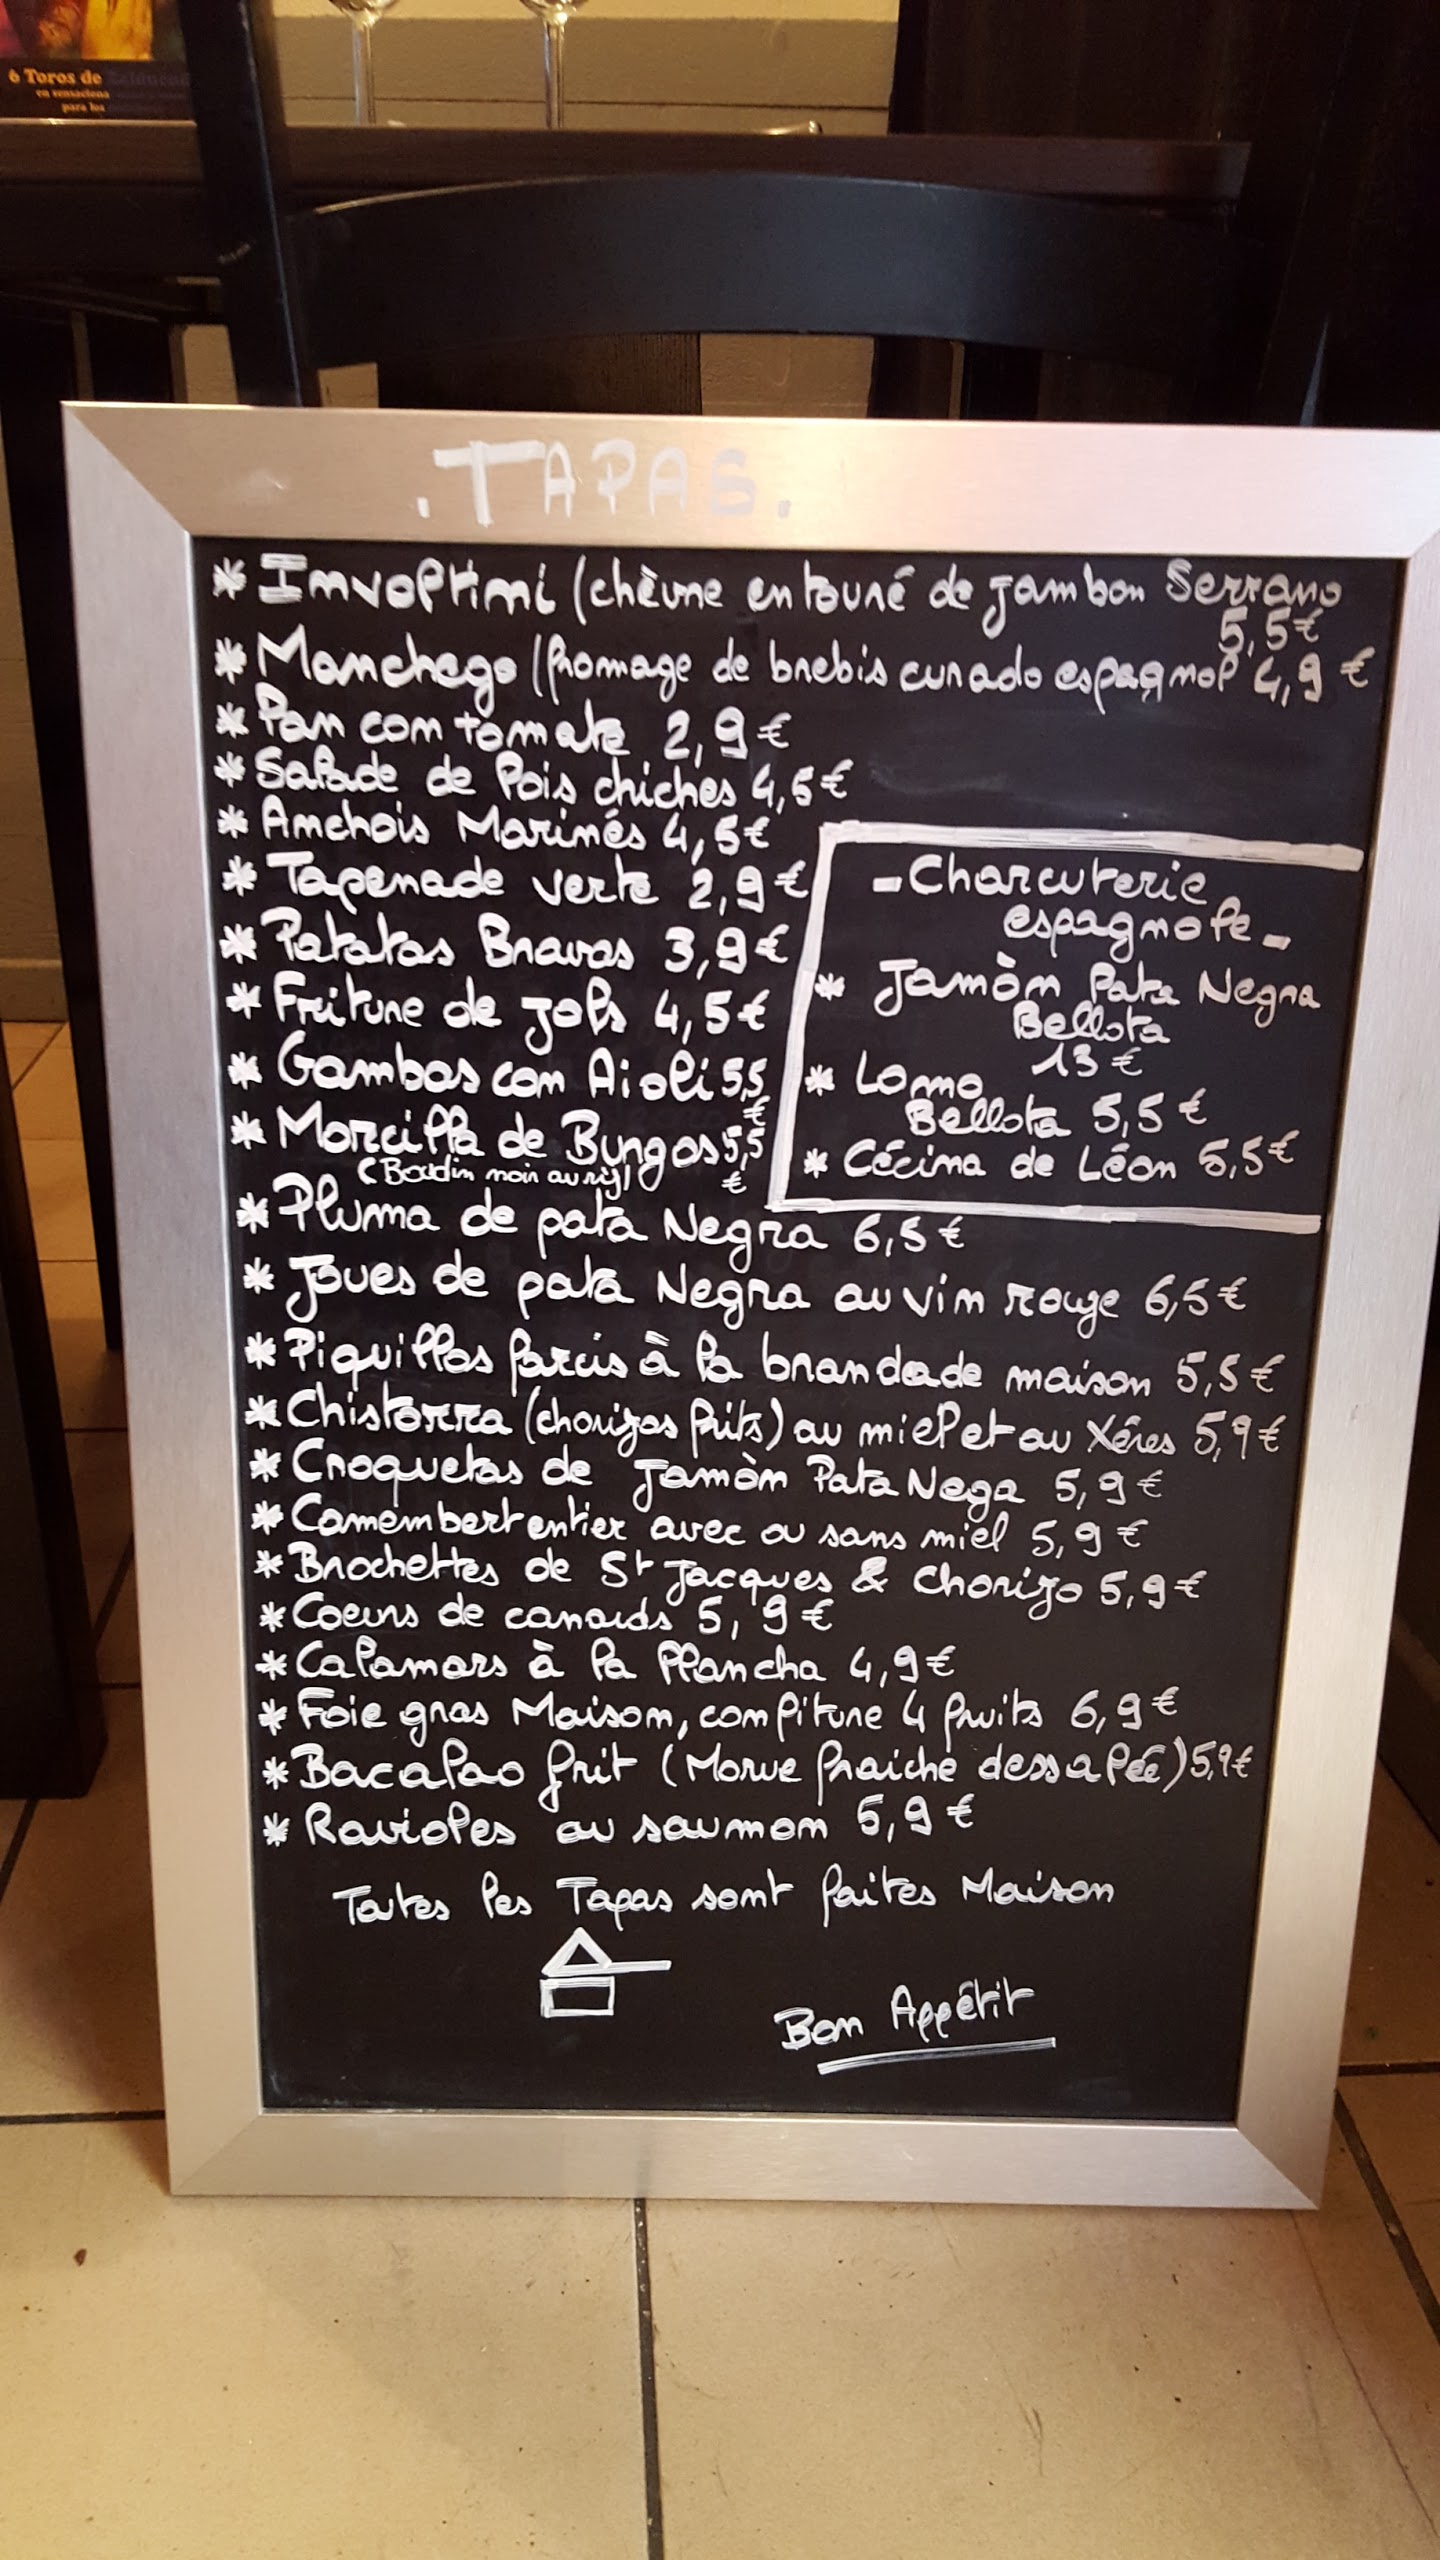 6 Toros de
en sensaciona
para los
. TAPAS .
* Involtini (chèvre entouré de jambon Serrano
5,5€
* Manchego (fromage de brebis curado espagnol 4,9 €
* Pan con tomate 2,9 €
* Salade de Pois chiches 4,5 €
* Anchois Marinés 4,5€
* Tapenade verte 2,9 €
* Patatas Bravas 3,9€
* Friture de Jols 4,5€
* Gambas con Aioli 5,5
€
* Morcilla de Burgos 5,5
(Boudin noir au riz) €
- Charcuterie
espagnole -
* Jamòn Pata Negra
Bellota
13 €
* Lomo
Bellota 5,5 €
* Cécina de Léon 5,5€
* Pluma de pata Negra 6,5 €
* Joues de pata Negra au vin rouge 6,5 €
* Piquillos farcis à la brandade maison 5,5 €
* Chistorra (chorizos frits) au miel et au Xérès 5,9 €
* Croquetas de Jamòn Pata Nega 5,9 €
* Camembert entier avec ou sans miel 5,9 €
* Brochettes de St Jacques & chorizo 5,9 €
* Coeurs de canards 5,9 €
* Calamars à la Plancha 4,9 €
* Foie gras Maison, confiture 4 fruits 6,9 €
* Bacalao frit (Morue fraiche dessalée) 5,9€
* Ravioles au saumon 5,9 €
Toutes les Tapas sont faites Maison
Bon Appétit